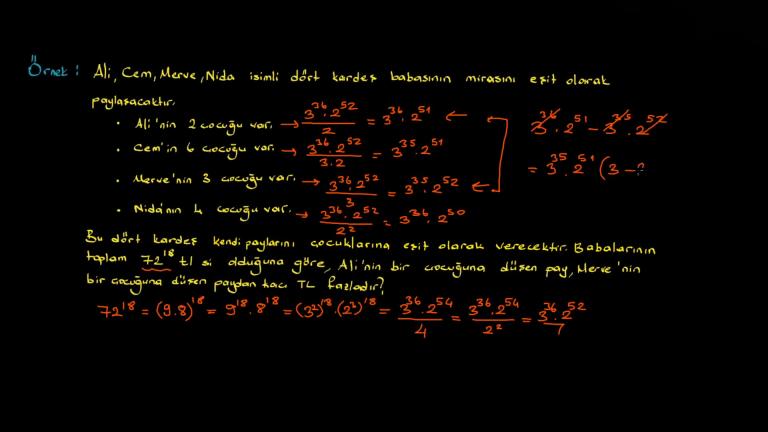 Örnek: Ali, Cem, Merve, Nida isimli dört kardeş babasının mirasını eşit olarak
paylaşacaktır.
• Ali'nin 2 çocuğu var. → 3^36 . 2^52 / 2 = 3^36 . 2^51 ←
• Cem'in 6 çocuğu var. → 3^36 . 2^52 / 3.2 = 3^35 . 2^51
• Merve'nin 3 çocuğu var. → 3^36 . 2^52 / 3 = 3^35 . 2^52 ←
• Nida'nın 4 çocuğu var. → 3^36 . 2^52 / 2^2 = 3^36 . 2^50
3^36 . 2^51 - 3^35 . 2^52
= 3^35 . 2^51 (3 - 2
Bu dört kardeş kendi paylarını çocuklarına eşit olarak verecektir. Babalarının
toplam 72^18 tl si olduğuna göre, Ali'nin bir çocuğuna düşen pay, Merve'nin
bir çocuğuna düşen paydan kaç TL fazladır?
72^18 = (9.8)^18 = 9^18 . 8^18 = (3^2)^18 . (2^3)^18 = 3^36 . 2^54 / 4 = 3^36 . 2^54 / 2^2 = 3^36 . 2^52 / 7